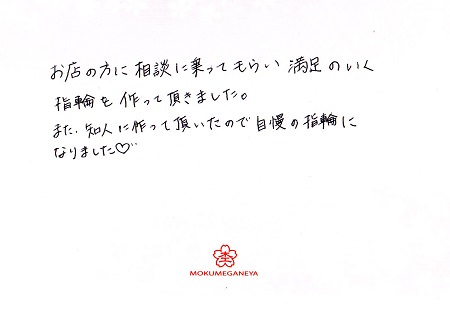 お店の方に相談に乗ってもらい満足のいく
指輪を作って頂きました。
また、知人に作って頂いたので自慢の指輪に
なりました♡
MOKUMEGANEYA